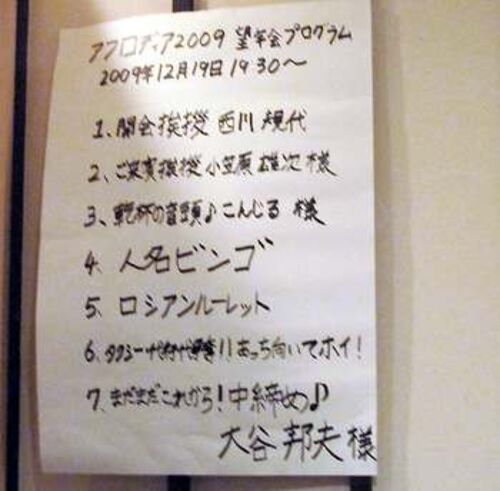 アフロディア2009 望年会プログラム
2009年12月19日 19:30〜
1、開会挨拶 西川 規代
2、ご来賓挨拶 小笠原 雄次 様
3、乾杯の音頭♪こんじる 様
4、人名ビンゴ
5、ロシアンルーレット
6、タクシー代 !!あっち向いてホイ!
7、まだまだこれから!中締め♪
大谷 邦夫 様